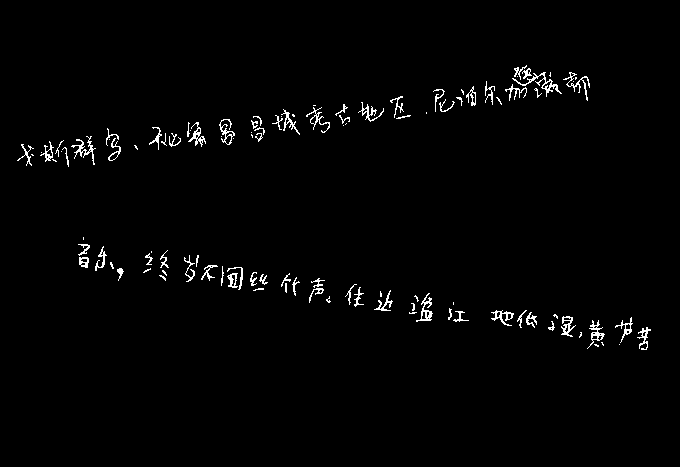 戈斯群岛、秘鲁昌昌城考古地区、尼泊尔加德满都
音乐，终岁不闻丝竹声。住近湓江地低湿，黄芦苦